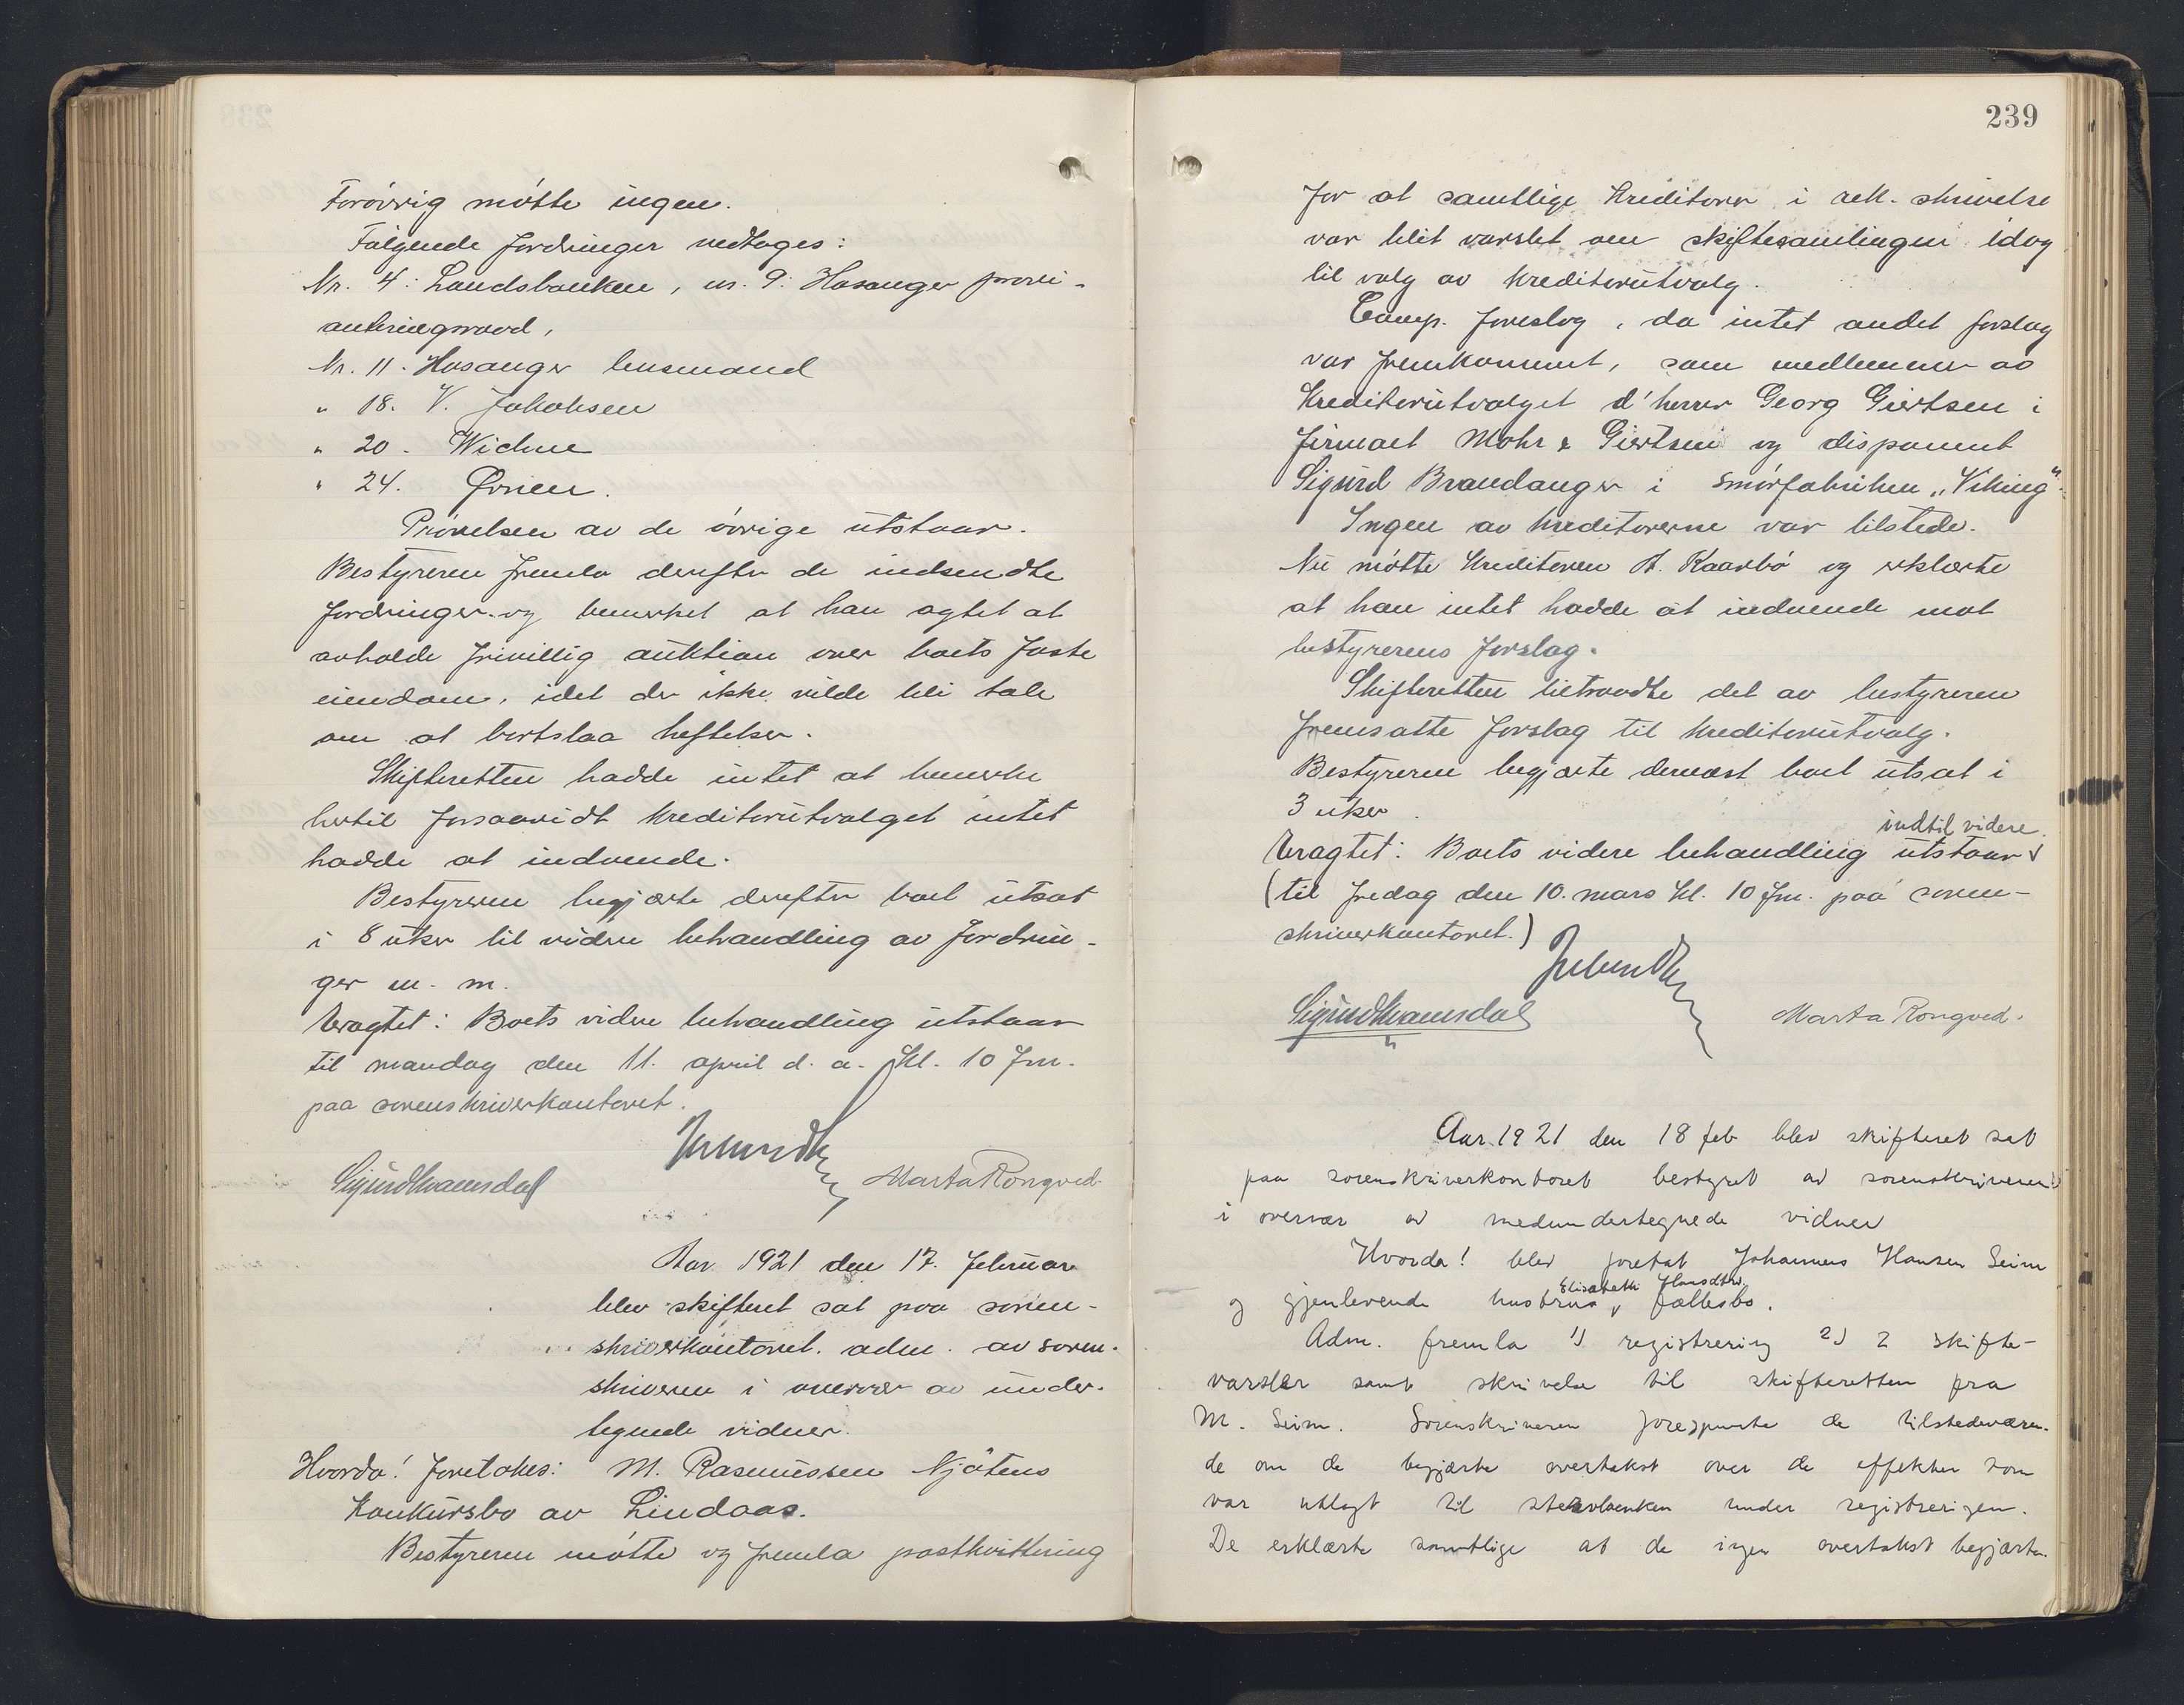 Forøvrig møtte ingen.
Følgende fordringer vedtoges:
Nr. 4: Landsbanken, nr. 9: Hosanger provi-
anteringsraad,
Nr. 11. Hosanger lensmand
" 18. V. Jakobsen
" 20. Wichne
" 24.
Prøvelsen av de øvrige utstaar.
Bestyreren fremla derefter de indsendte
fordringer og bemerket at han agtet at
avholde frivillig auktion over boets faste
eiendom, idet der ikke vilde bli tale
om at bortslaa heftelser.
Skifteretten hadde intet at bemerke
hertil forsaavidt kreditorutvalget intet
hadde at indvende.
Bestyreren begjærte derefter boet utsat
i 8 uker til videre behandling av fordrin-
ger m. m.
Eragtet: Boets videre behandling utstaar
til mandag den 11. april d. a. kl. 10 fm.
paa sorenskriverkontoret.
Sigurd Kvamsdal Marta Rongved
Aar 1921 den 17. februar
blev skifteret sat paa soren-
skriverkontoret. adm. av soren-
skriveren i overvær av under-
tegnede vidner.
Hvorda! foretokes: M. Rasmussen Njøtens
konkursbo av Lindaas.
Bestyreren møtte og fremla postkvittering
239
for at samtlige kreditorer i rek. skrivelse
var blit varslet om skiftesamlingen idag
til valg av kreditorutvalg.
Comp. foreslog, da intet andet forslag
var fremkommet, som medlemmer av
kreditorutvalget d'herrer Georg Giertsen i
firmaet Mohr & Giertsen og disponent
Sigurd Brandanger i smørfabriken „Viking".
Ingen av kreditorerne var tilstede.
Nu møtte kreditoren A. Kaarbø og erklærte
at han intet hadde at indvende mot
bestyrerens forslag.
Skifteretten tiltraadte det av bestyreren
fremsatte forslag til kreditorutvalg.
Bestyreren begjærte dernæst boet utsat i
3 uker.
indtil videre.
Eragtet: Boets videre behandling utstaar
(til fredag den 10. mars kl. 10 fm. paa soren-
skriverkontoret.)
Sigurd Kvamsdal Marta Rongved.
Aar 1921 den 18 feb blev skifteret sat
paa sorenskriverkontoret bestyret av sorenskriveren
i overvær av medundertegnede vidner
Hvorda! blev foretat Johannes Hansen Seim
Elisabeth Hansdtrs
og gjenlevende hustrus fællesbo.
Adm. fremla 1) registrering 2) 2 skifte-
varsler samt skrivelse til skifteretten fra
M. Seim. Sorenskriveren forespurte de tilstedeværen-
de om de begjærte overtakst over de effekter som
var utlagt til under registreringen.
De erklærte samtlige at de ingen overtakst begjærte.